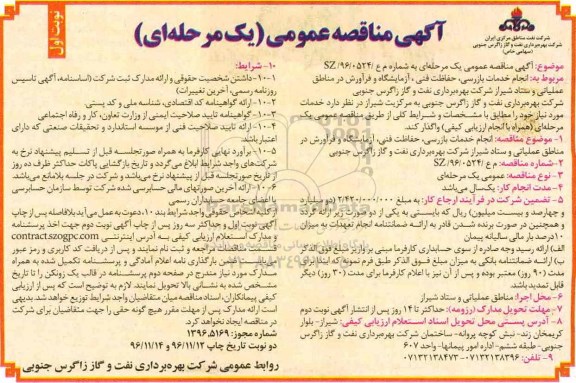 نوبت اول
آگهی مناقصه عمومی (یک مرحله‌ای)
شرکت نفت مناطق مرکزی ایران
شرکت بهره‌برداری نفت و گاز زاگرس جنوبی
(سهامی خاص)
موضوع: آگهی مناقصه عمومی یک مرحله‌ای به شماره م ع /SZ/۹۶/۰۵۲۴
مربوط به: انجام خدمات بازرسی، حفاظت فنی ، آزمایشگاه و فرآورش در مناطق
عملیاتی و ستاد شیراز شرکت بهره‌برداری نفت و گاز زاگرس جنوبی
شرکت بهره‌برداری نفت و گاز زاگرس جنوبی به مرکزیت شیراز در نظر دارد خدمات
مورد نیاز خود را مطابق با مشخصات و شرایط کلی از طریق مناقصه عمومی یک
مرحله‌ای (همراه با انجام ارزیابی کیفی) واگذار کند.
۱- موضوع مناقصه: انجام خدمات بازرسی، حفاظت فنی، آزمایشگاه و فرآورش در
مناطق عملیاتی و ستاد شیراز شرکت بهره‌برداری نفت و گاز زاگرس جنوبی
۲- شماره مناقصه: م ع /SZ/۹۶/۰۵۲۴
۳- نوع مناقصه: عمومی یک مرحله‌ای
۴- مدت انجام کار: یک‌سال می‌باشد
۵- تضمین شرکت در فرآیند ارجاع کار: به مبلغ ۲/۴۲۰/۰۰۰/۰۰۰ (دو میلیارد
و چهارصد و بیست میلیون) ریال که بایستی به یکی از دو صورت زیر ارائه گردد
و همچنین در صورت برنده شدن قادر به ارائه ضمانتنامه انجام تعهدات به میزان
۱۰درصد بار مالی سالیانه پیمان
الف) ارائه رسید وجه صادره از سوی حسابداری کارفرما مبنی بر واریز مبلغ فوق الذکر
ب) ارائه ضمانتنامه بانکی به میزان مبلغ فوق الذکر طبق فرم نمونه که ابتدا برای
مدت (۹۰ روز) معتبر بوده و پس از آن نیز با اعلام کارفرما برای مدت (۳۰ روز) دیگر
قابل تمدید باشد.
۶- محل اجرا: مناطق عملیاتی و ستاد شیراز
۷- مهلت تحویل مدارک (رزومه): حداکثر تا ۱۴ روز پس از انتشار آگهی نوبت دوم
۸- آدرس پستی محل تحویل اسناد استعلام ارزیابی کیفی: شیراز- بلوار
کریمخان زند- نبش کوچه پروانه- ساختمان شرکت نفت و گاز زاگرس
جنوبی- طبقه ششم-اداره امور پیمانها- واحد ۶۰۷
۹- تلفن: ۰۷۱۳۲۱۳۸۳۹۶-۰۷۱۳۲۱۳۸۴۷۳
۱۰- شرایط:
۱۰-۱-داشتن شخصیت حقوقی و ارائه مدارک ثبت شرکت (اساسنامه، آگهی تاسیس
روزنامه رسمی، آخرین تغییرات)
۱۰-۲- ارائه گواهینامه کد اقتصادی، شناسه ملی و کد پستی.
۱۰-۳- گواهینامه تایید صلاحیت ایمنی از وزارت تعاون، کار و رفاه اجتماعی
۱۰-۴- ارائه تایید صلاحیت فنی از موسسه استاندارد و تحقیقات صنعتی که دارای
اعتبار باشد.
۱۰-۵- برآورد نهایی کارفرما به همراه صورتجلسه قبل از تسلیم پیشنهاد نرخ به
شرکت‌های واجد شرایط ابلاغ می‌گردد و تاریخ بازگشایی پاکات حداکثر ظرف ده روز
از تاریخ صورتجلسه قبل از پیشنهاد نرخ می‌باشد و شرکت در جلسه بلامانع می‌باشد.
۱۰-۶- ارائه آخرین صورتهای مالی حسابرسی شده شرکت توسط سازمان حسابرسی
یا اعضای جامعه حسابداران رسمی
از کلیه اشخاص حقوقی واجد شرایط بند ۱۰، دعوت به عمل می‌آید بلافاصله پس از چاپ
آگهی نوبت اول و حداکثر سه روز پس از چاپ آگهی نوبت دوم جهت اخذ پرسشنامه
و مدارک استعلام ارزیابی کیفی به آدرس اینترنتی contract.szogpc.com
قسمت مناقصات مراجعه و ثبت نام نمایند و پس از دریافت کد کاربری و رمز عبور
مدارک مورد نیاز مندرج در صفحه دوم پرسشنامه در قالب یک زونکن را تا تاریخ
مشخص شده به نشانی بالا تحویل نمایند. لازم به توضیح است که پس از ارزیابی
کیفی پیمانکاران، اسناد مناقصه میان متقاضیان واجد شرایط توزیع خواهد شد. بدیهی
است ارائه مدارک پس از مهلت مقرر هیچ گونه حقی را جهت متقاضیان برای شرکت
در مناقصه ایجاد نخواهد کرد.
شماره مجوز: ۱۳۹۶.۵۱۶۹
دو نوبت تاریخ چاپ ۹۶/۱۱/۱۲ و ۹۶/۱۱/۱۴
روابط عمومی شرکت بهره‌برداری نفت و گاز زاگرس جنوبی